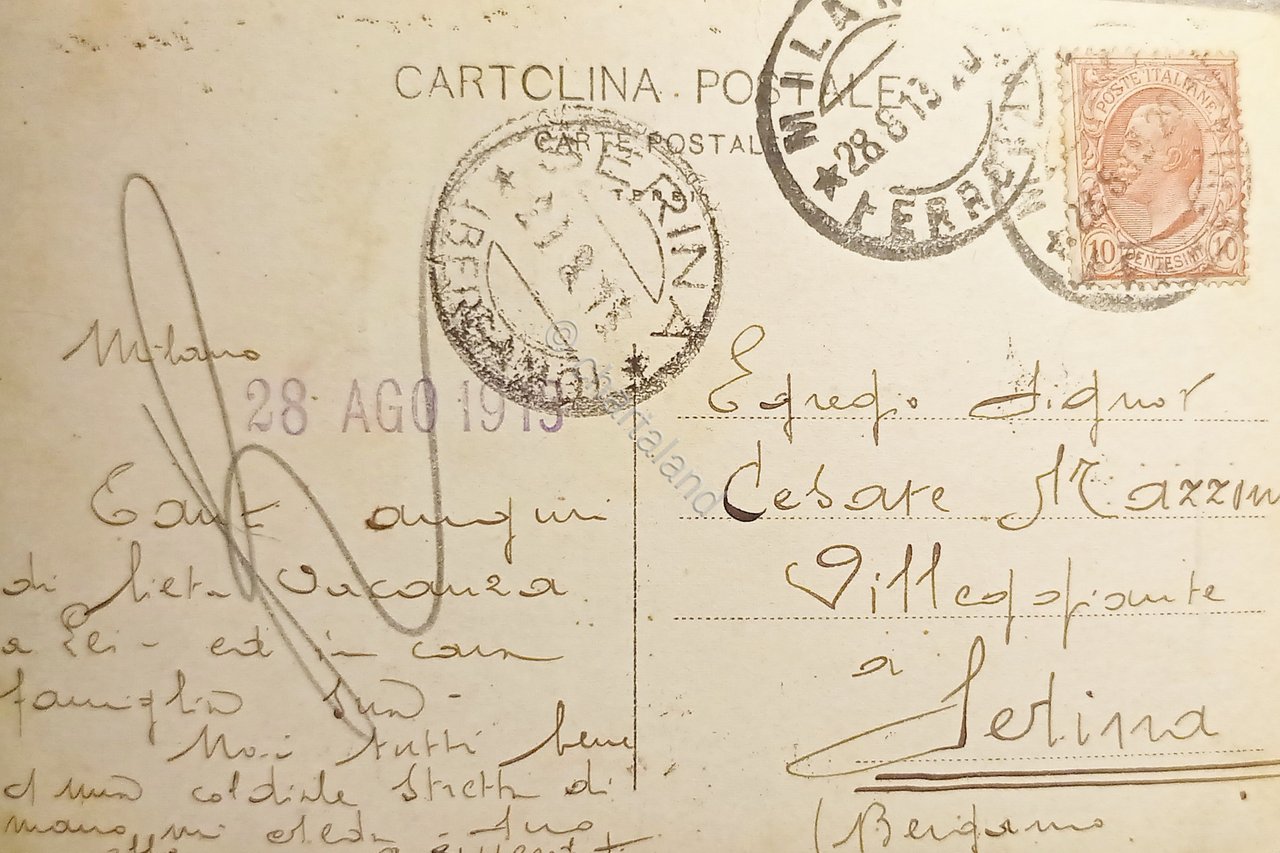 CARTOLINA POSTALE
CARTE POSTALE
MILANO
*28.8.19 20
FERROVIA
POSTE ITALIANE
10 CENTESIMI 10
SERINA
(BERGAMO)
Milano
28 AGO 1919
Tanti auguri
di lieta vacanza
a Lei - ed in cara
famiglia sua -
Noi tutti bene
mia cordiale stretta di
mano, mi creda - suo
Egregio Signor
Cesare Mazzin
Villa
a
Serina
(Bergamo
© charitaland